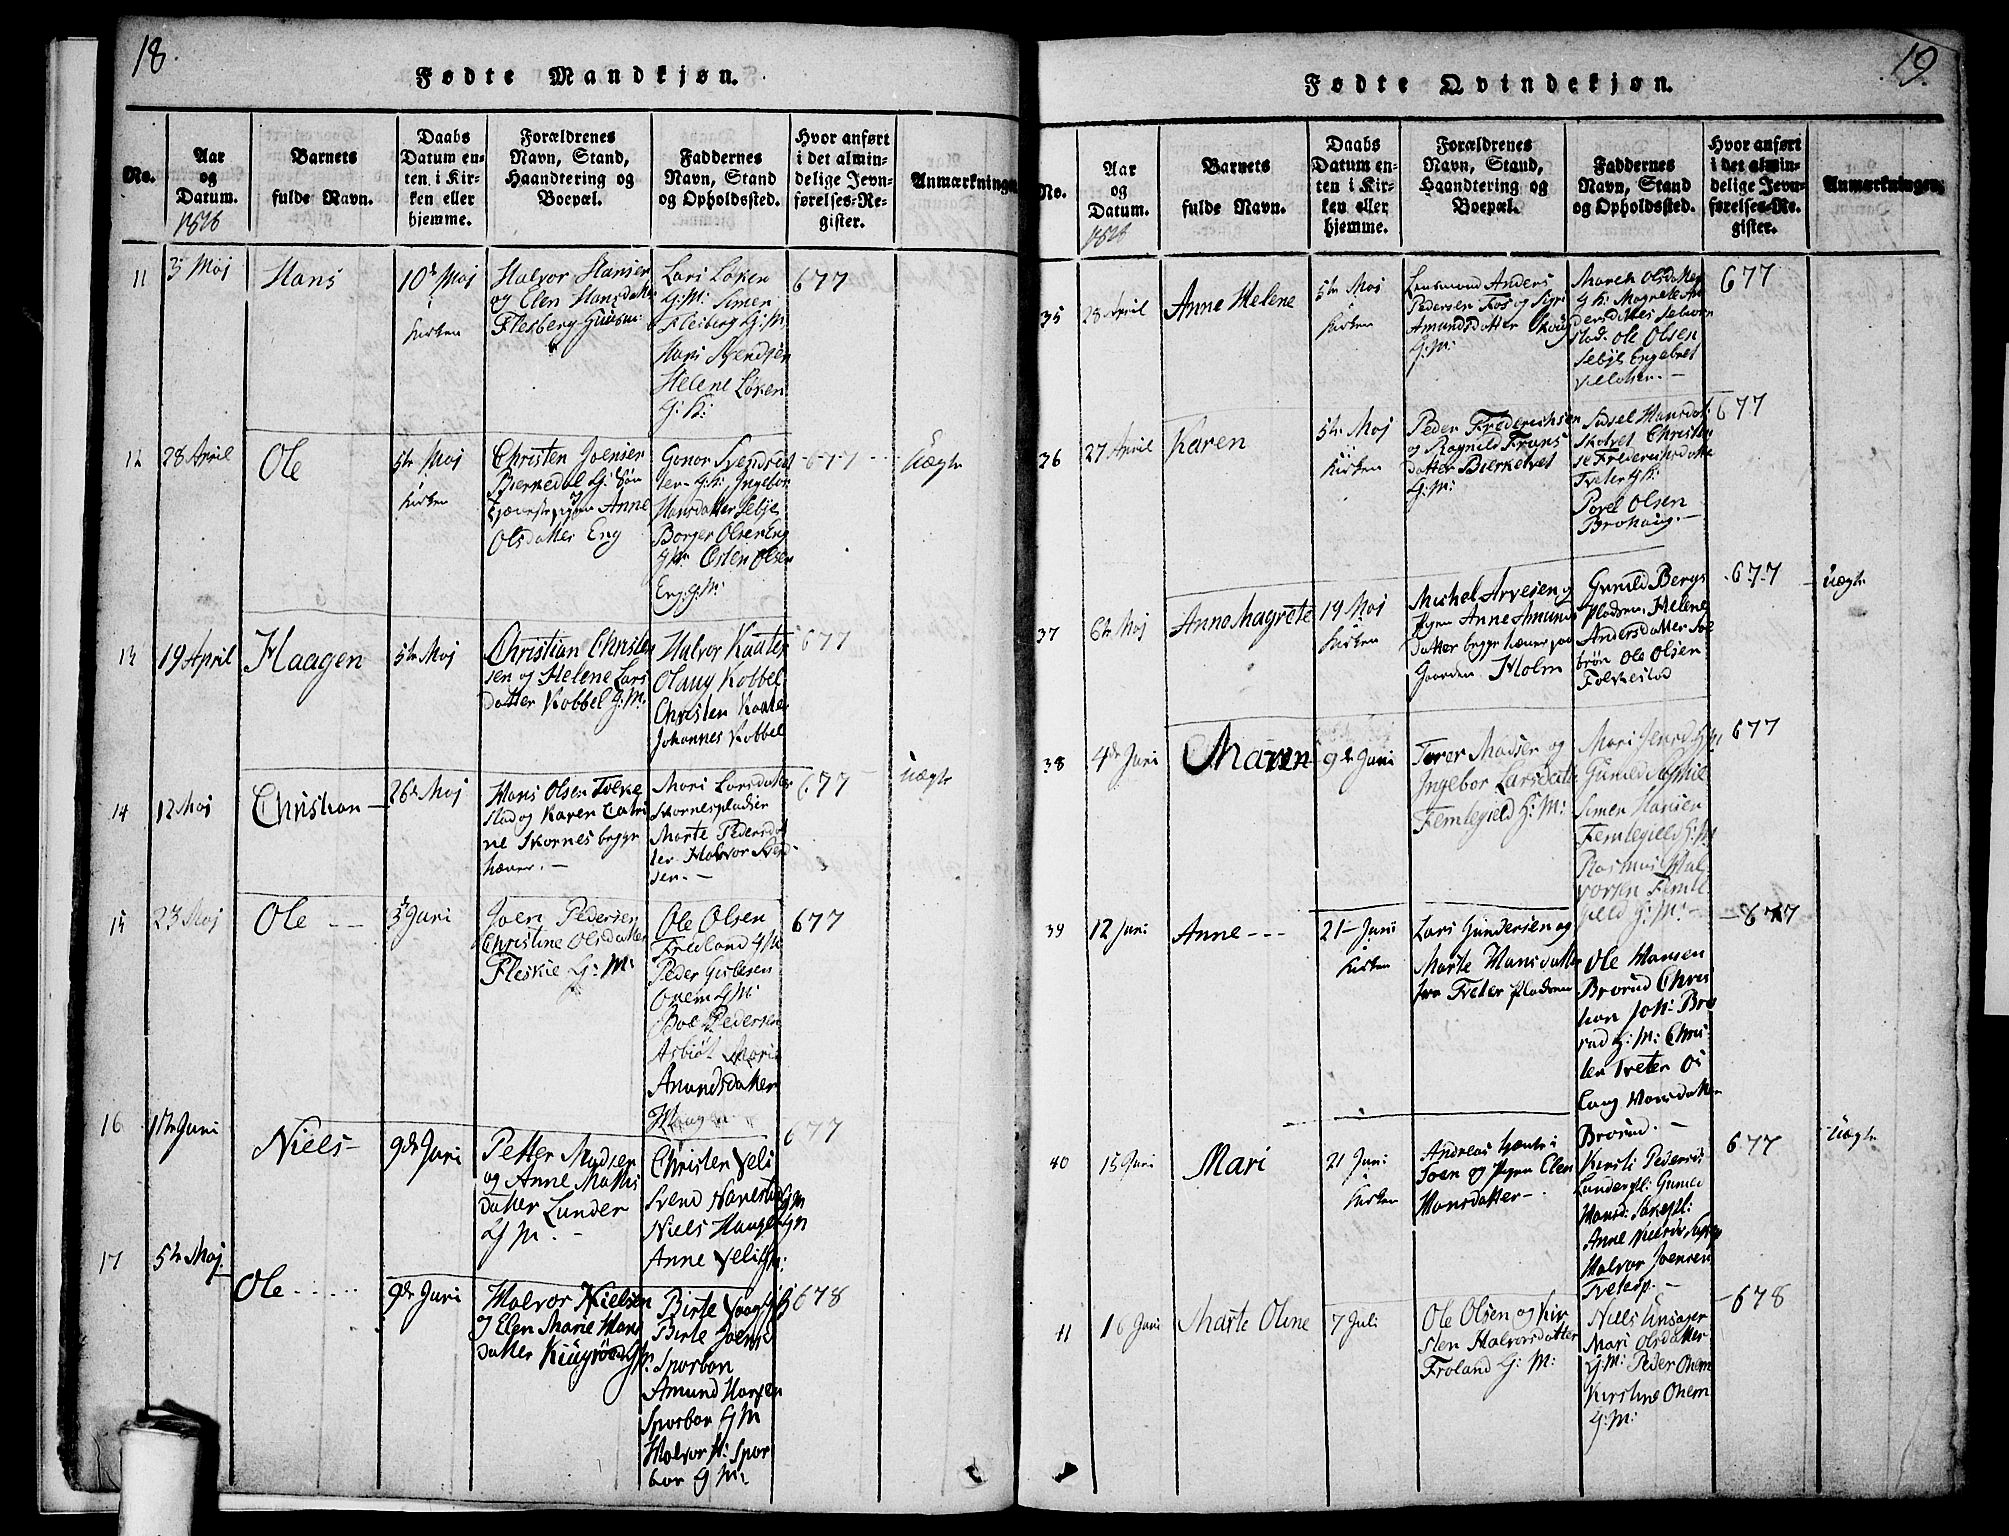 18.
Fødte Mandkjøn.
No.
Aar
og
Datum.
1816
Barnets
fulde Navn.
Daabs
Datum en-
ten i Kir-
ken eller
hjemme.
Forældrenes
Navn, Stand,
Haandtering og
Boepæl.
Faddernes
Navn, Stand
og Opholdssted.
Hvor anført
i det almin-
delige Jevn-
førelses-Re-
gister.
Anmærkninger
11
3 Maj
Hans
10 Maj
i
kirken
Halvor Hansen
og Elen Hansdatter
Flesberg
Lars Løken
G: M: Simen
Flesberg G: M
Hans Svendsen
Helene Løken
G: K:
677
12
28 April
Ole
5te Maj
kirken
Christen Joensen
Bierkedal G: Søn
og
Tjenestepigen Anne
Olsdatter Eng
Gonor Svendsdat
ter G: K: Ingebor
Hansdatter Sebje
Borger Olsen Eng
Osten Olsen
Eng. G: M:
677
Uægte
13
19 April
Haagen
5te Maj
Christian Christen
sen og Helene Lars
datter Kobbel G: M:
Halvor Kaater
Olaug Kobbel
Christen Kaater
Johannes Kobbel
677
14
12 Maj
Christian
26de Maj
Hans Olsen Folke
stad og Karen Catri
ne Skornes begge
Mari Larsdatter
Skornespladsen
Marte Pedersdat
ter Halvor Svend
sen. —
677
Uægte
15
23 Maj
Ole
3de Juni
Joen Pedersen
Christine Olsdatter
Fleskie G: M:
Ole Olsen
Froland G M:
Peder Gislesen
Onem G M:
Boe Pedersen
Asbiøl Mari
Amundsdatter
Haagen
677
16
1te Juni
Niels
9de Juni
Petter Madsen
og Anne Mathis
datter Lunder
G M: —
Christen Veli
Svend Navestad G M
Niels Hauge G M
Anne Veli G M:
677
17
5te Maj
Ole
9de Juni
Halvor Nielsen
og Elen Marie Hans
datter
Birte
Birte Joens
Sporbon
Amund Hansen
Sporbon G M
Halvor H: Spor
bon G M:
678
19.
Fødte Qvindekjøn.
No.
Aar
og
Datum.
1816
Barnets
fulde Navn.
Daabs
Datum en-
ten i Kir-
ken eller
hjemme.
Forældrenes
Navn, Stand,
Haandtering og
Boepæl.
Faddernes
Navn, Stand
og Opholdssted.
Hvor anført
i det almin-
delige Jevn-
førelses-Re-
gister.
Anmærkninger.
35
28 April
Anne Helene
5te Maj
i
kirken
Lensmand Anders
Pedersen Fos og Siri
Amundsdatter
G: M:
Maren Olsdatter
G K: Magrete An
dersdatter
stad. Ole Olsen
Sebje Engebret
677
36
27 April
Karen
5te Maj
i
kirken
Peder Frederichsen
og Ragnild Frans
datter Bierketvet
G: M:
Sidsel Hansdat
Skalvet Christen
se Frederichsdatter
Tveter G K:
Povel Olsen
Brohaug. —
677
37
6te Maj
Anna Magrete
19 Maj
kirken
Michel Arvesen og
Pigen Anne Amunds
datter begge
Gaarden Holm
Gunild Bergs
pladsen, Helene
Andersdatter
Ole Olsen
Folkestad
677
Uægte
38
4de Juni
Maren
9de Juni
Torer Madsen og
Ingebor Larsdatter
Femlegield G: M:
Mari
Gunild
Simen Hansen
Femlegield G: M
Rasmus Hal
vorsen Femle
gield G: M: —
677
39
12 Juni
Anne
21 Juni
kirken
Lars Gundersen og
Marte Hansdatter
fra Tveter Pladsen
Ole Hansen
Brorud Chris
han Joh: Bro
rud G: M: Chris
ten Tveter Os
laug Hansdatter
Brorud. —
677
40
15 Juni
Mari
i
21 Juni
kirken
Andreas
Joen og Pigen Elen
Hansdatter —.
Kirsti Pedersd:
Lunderpl: Gunild
Hansd:
Anne
Halvor Joensen
Tveterp. —
677
Uægte
41
16 Juni
Marte Oline
7 Juli
Ole Olsen og Kir
sten Halvorsdatter
Froland G: M:
Niels
Mari Olsdatter
G: M: Peder Onem
Kirstine Onem
G: M:
678